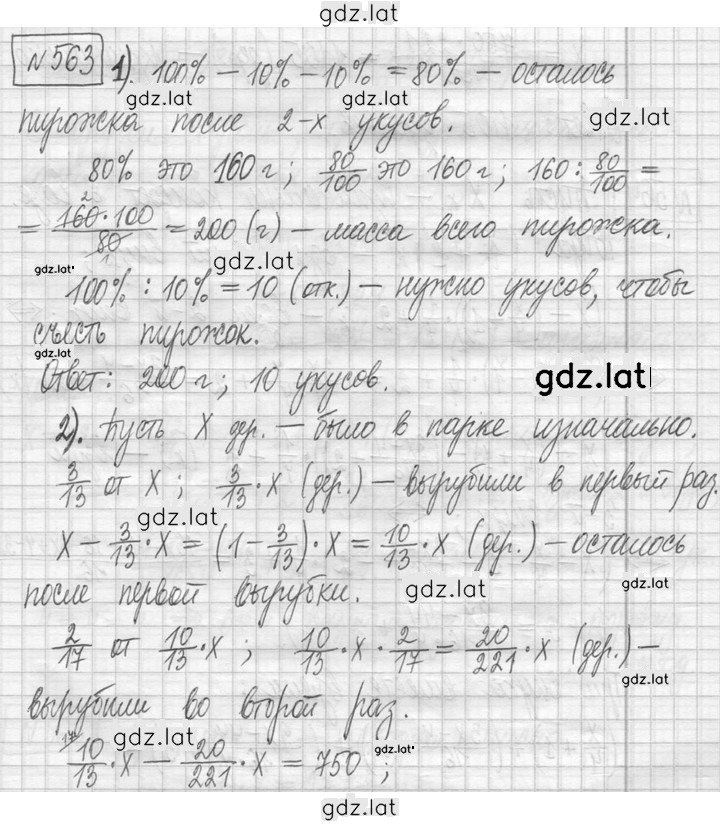 gdz.lat
№563 1). 100% - 10% - 10% = 80% - осталось
gdz.lat gdz.lat gdz.lat
пирожка после 2-х укусов.
80% это 160 г; 80/100 это 160 г; 160 : 80/100 =
= 160² · 100 / 80₁ = 200 (г) - масса всего пирожка.
gdz.lat gdz.lat
100% : 10% = 10 (отк.) - нужно укусов, чтобы
съесть пирожок.
gdz.lat
Ответ: 200 г; 10 укусов.
gdz.lat
2). Пусть X дер. - было в парке изначально.
3/13 от X; 3/13 · X (дер.) - вырубили в первый раз.
gdz.lat
X - 3/13 · X = (1 - 3/13) · X = 10/13 · X (дер.) - осталось
gdz.lat gdz.lat
после первой вырубки.
2/17 от 10/13 · X; 10/13 · X · 2/17 = 20/221 · X (дер.) -
gdz.lat
вырубили во второй раз.
gdz.lat gdz.lat
17\ 10/13 · X - 20/221 · X = 750;
gdz.lat